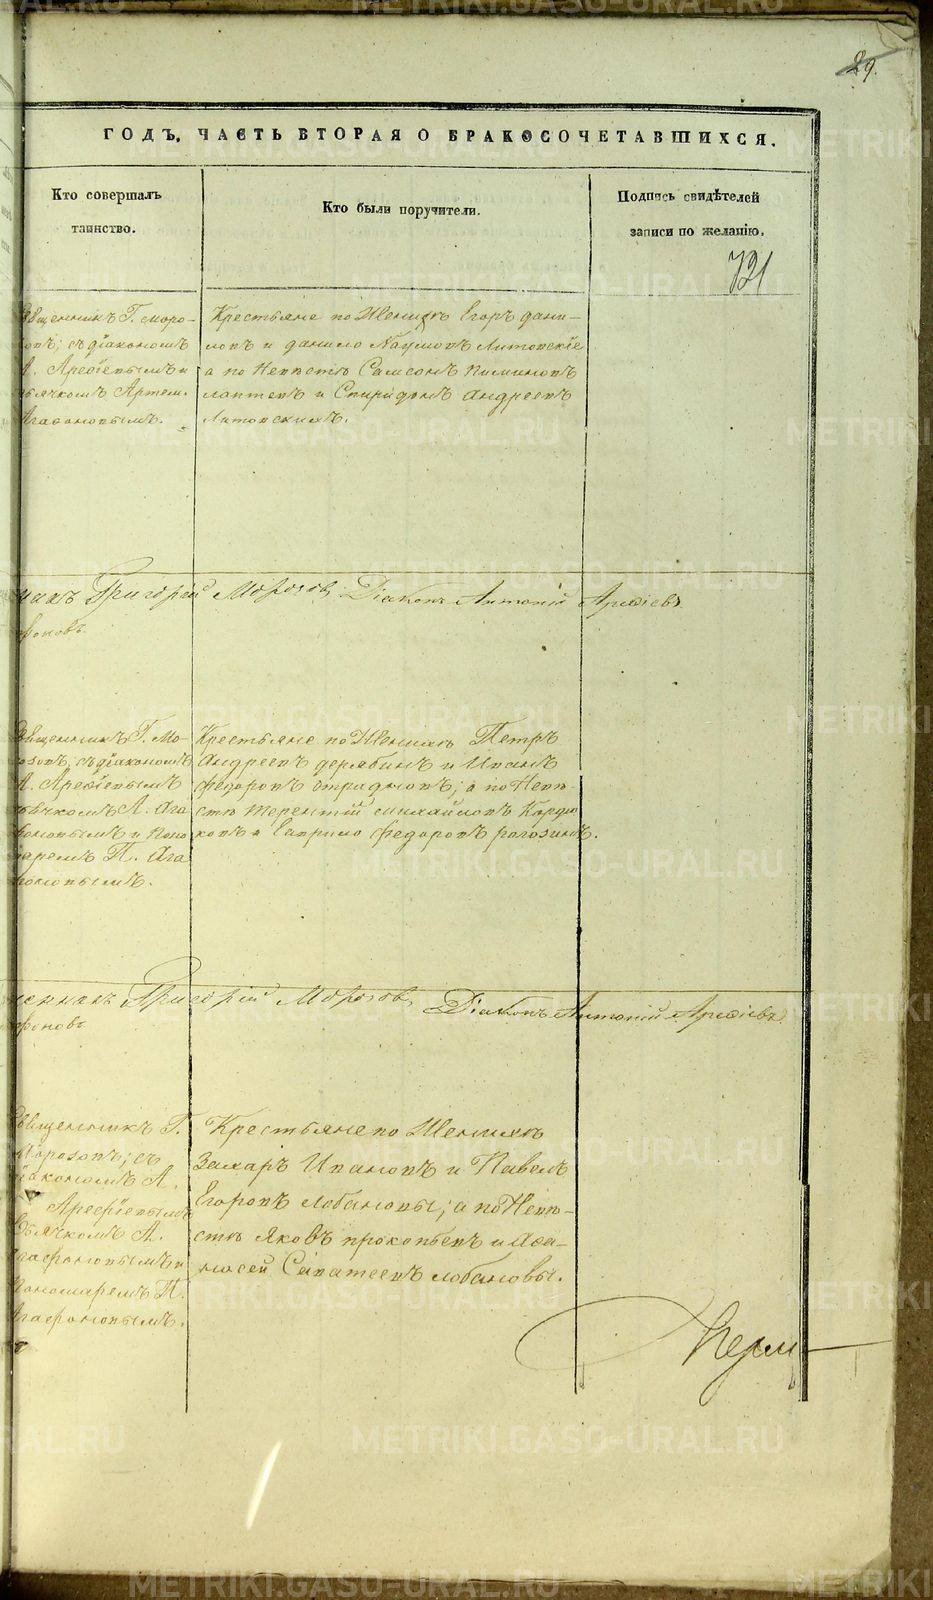 29.
ГОДЪ, ЧАСТЬ ВТОРАЯ О БРАКОСОЧЕТАВШИХСЯ.
Кто совершалъ
таинство.
Кто были поручители.
Подпись свидѣтелей
записи по желанію.
721
Священникъ Г. Моро-
зовъ; съ діакономъ
А. Арефіевымъ и
дьячкомъ Артем.
Агафоновымъ.
Крестьяне по Женихѣ Егоръ Дани-
ловъ и Данило Наумовъ Литовскіе
а по Невѣстѣ Самсонъ Пиминовъ
Лаптевъ и Спиридонъ Андреевъ
Литовскихъ.
Григорій Морозовъ Діаконъ Антоній Арефіевъ
Священникъ Г. Мо-
розовъ, съ діакономъ
А. Арефіевымъ
дьячкомъ А. Ага
фоновымъ и Поно
маремъ П. Ага
фоновымъ.
Крестьяне по Женихѣ Петръ
Андреевъ Дерябинъ и Иванъ
Федоровъ Отрадновъ; а по Невѣ-
стѣ Терентій Михайловъ Курдю
ковъ и Гаврило Федоровъ Рогозинъ.
Григорій Морозовъ Діаконъ Антоній Арефіевъ
Священникъ Г.
Морозовъ; съ
діакономъ А.
Арефіевымъ
дьячкомъ А.
Агафоновымъ и
пономаремъ П.
Агафоновымъ.
Крестьяне по Женихѣ
Захаръ Ивановъ и Павелъ
Егоровъ Лобановы; а по Невѣ-
стѣ Яковъ Прокопьевъ и Афа-
насей Савατеевъ Лобановы.
METRIKI.GASO-URAL.RU